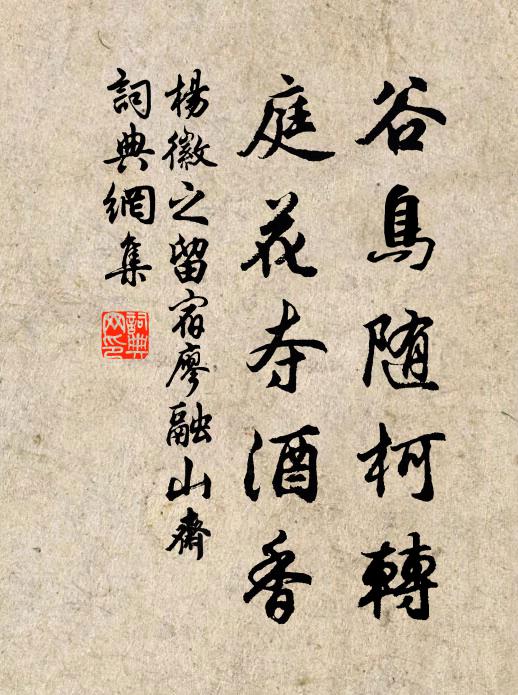 谷鳥随柯轉
庭花夺酒香
楊徽之留宿廖融山齋
詞典網集
詞典网印